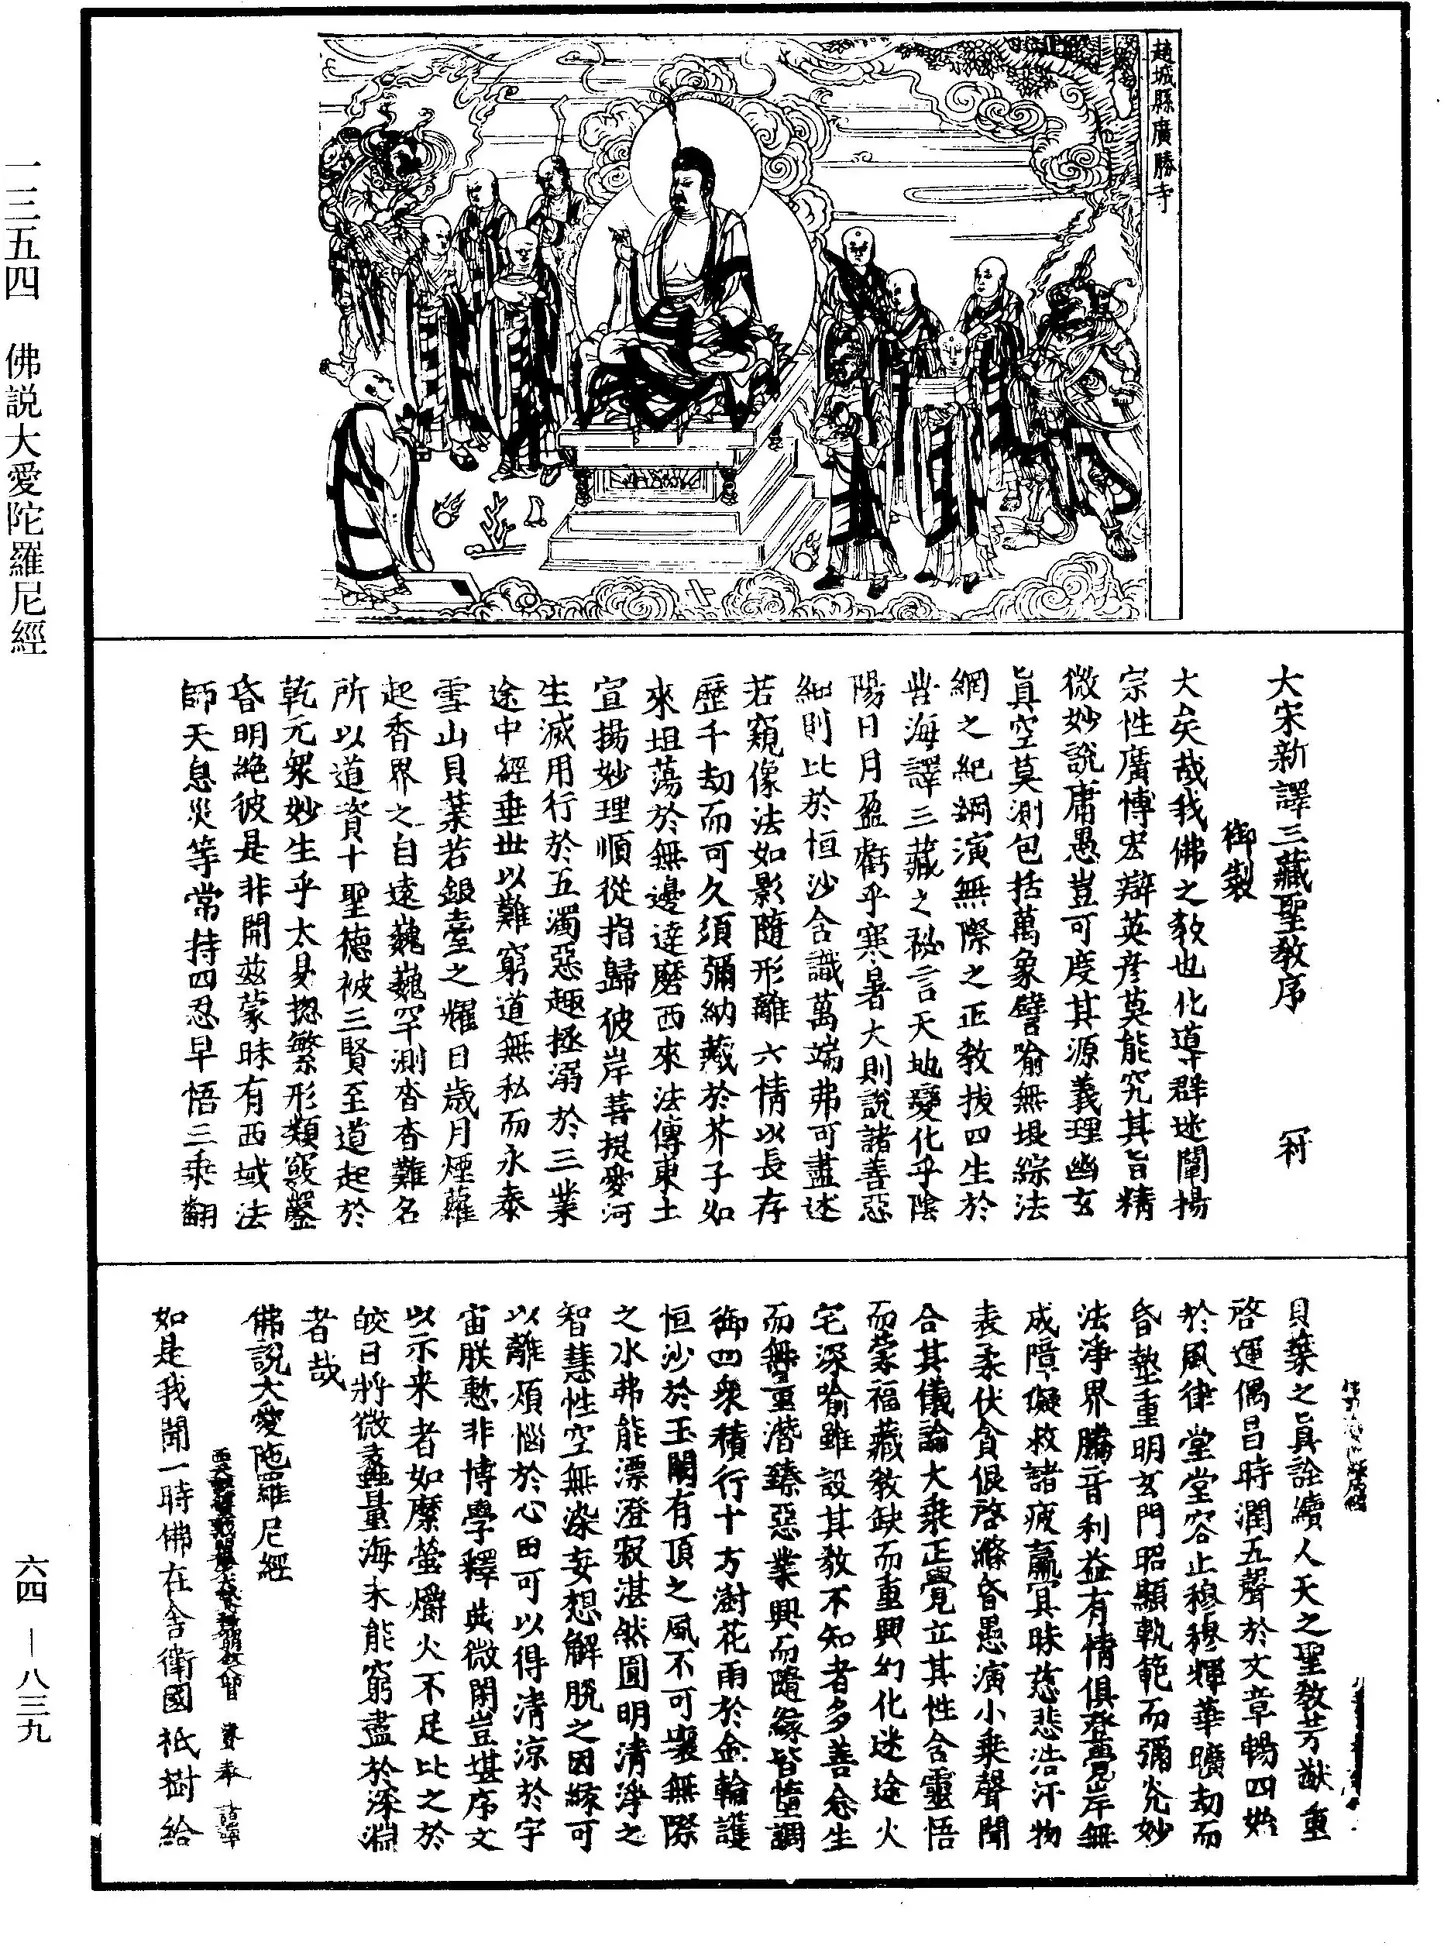 趙城縣廣勝寺
一三五四　佛説大愛陀羅尼經
大宋新譯三藏聖教序
御製
大矣哉我佛之教也化導群迷闡揚
宗性廣博宏辯英彦莫能究其旨精
微妙説庸愚豈可度其源義理幽玄
眞空莫測包括萬象譬喻無垠綜法
網之紀綱演無際之正教拔四生於
苦海譯三藏之秘言天地變化乎陰
陽日月盈虧乎寒暑大則説諸善惡
細則比於恒沙含識萬端弗可盡述
若窺像法如影隨形離六情以長存
歷千劫而可久須彌納藏於芥子如
來坦蕩於無邊達磨西來法傳東土
宣揚妙理順從指歸彼岸菩提愛河
生滅用行於五濁惡趣拯溺於三業
途中經垂世以難窮道無私而永泰
雪山貝葉若銀臺之耀日歳月煙蘿
起香界之自遠巍巍罕測杳杳難名
所以道資十聖德被三賢至道起於
乾元衆妙生乎太易揔繁形類竅鑿
昏明絶彼是非開兹蒙昧有西域法
師天息災等常持四忍早悟二乘翻
貝葉之眞詮續人天之聖教芳猷重
啓運偶昌時潤五聲於文章暢四始
於風律堂堂容止穆穆輝華曠劫而
昏墊重明玄門昭顯軌範而彌光妙
法淨界騰音利益有情俱登覺岸無
成障礙救諸疲羸冥昧慈悲浩汗物
表柔伏貪佷啓滌昏愚演小乘聲聞
合其儀論大乘正覺立其性含靈悟
而蒙福藏教缺而重興幻化迷途火
宅深喻雖設其教不知者多善念生
而無量潛臻惡業興而隨緣皆墮調
御四衆積行十方澍花雨於金輪護
恒沙於玉闕有頂之風不可壞無際
之水弗能漂澄寂湛然圓明清淨之
智慧性空無染妄想解脱之因緣可
以離煩惱於心田可以得清涼於宇
宙朕慙非博學釋典微閑豈堪序文
以示来者如縻螢爝火不足比之於
皎日將微蠡量海未能窮盡於深淵
者哉
佛説大愛陁羅尼經
如是我聞一時佛在舍衛國祇樹給
六四—八三九